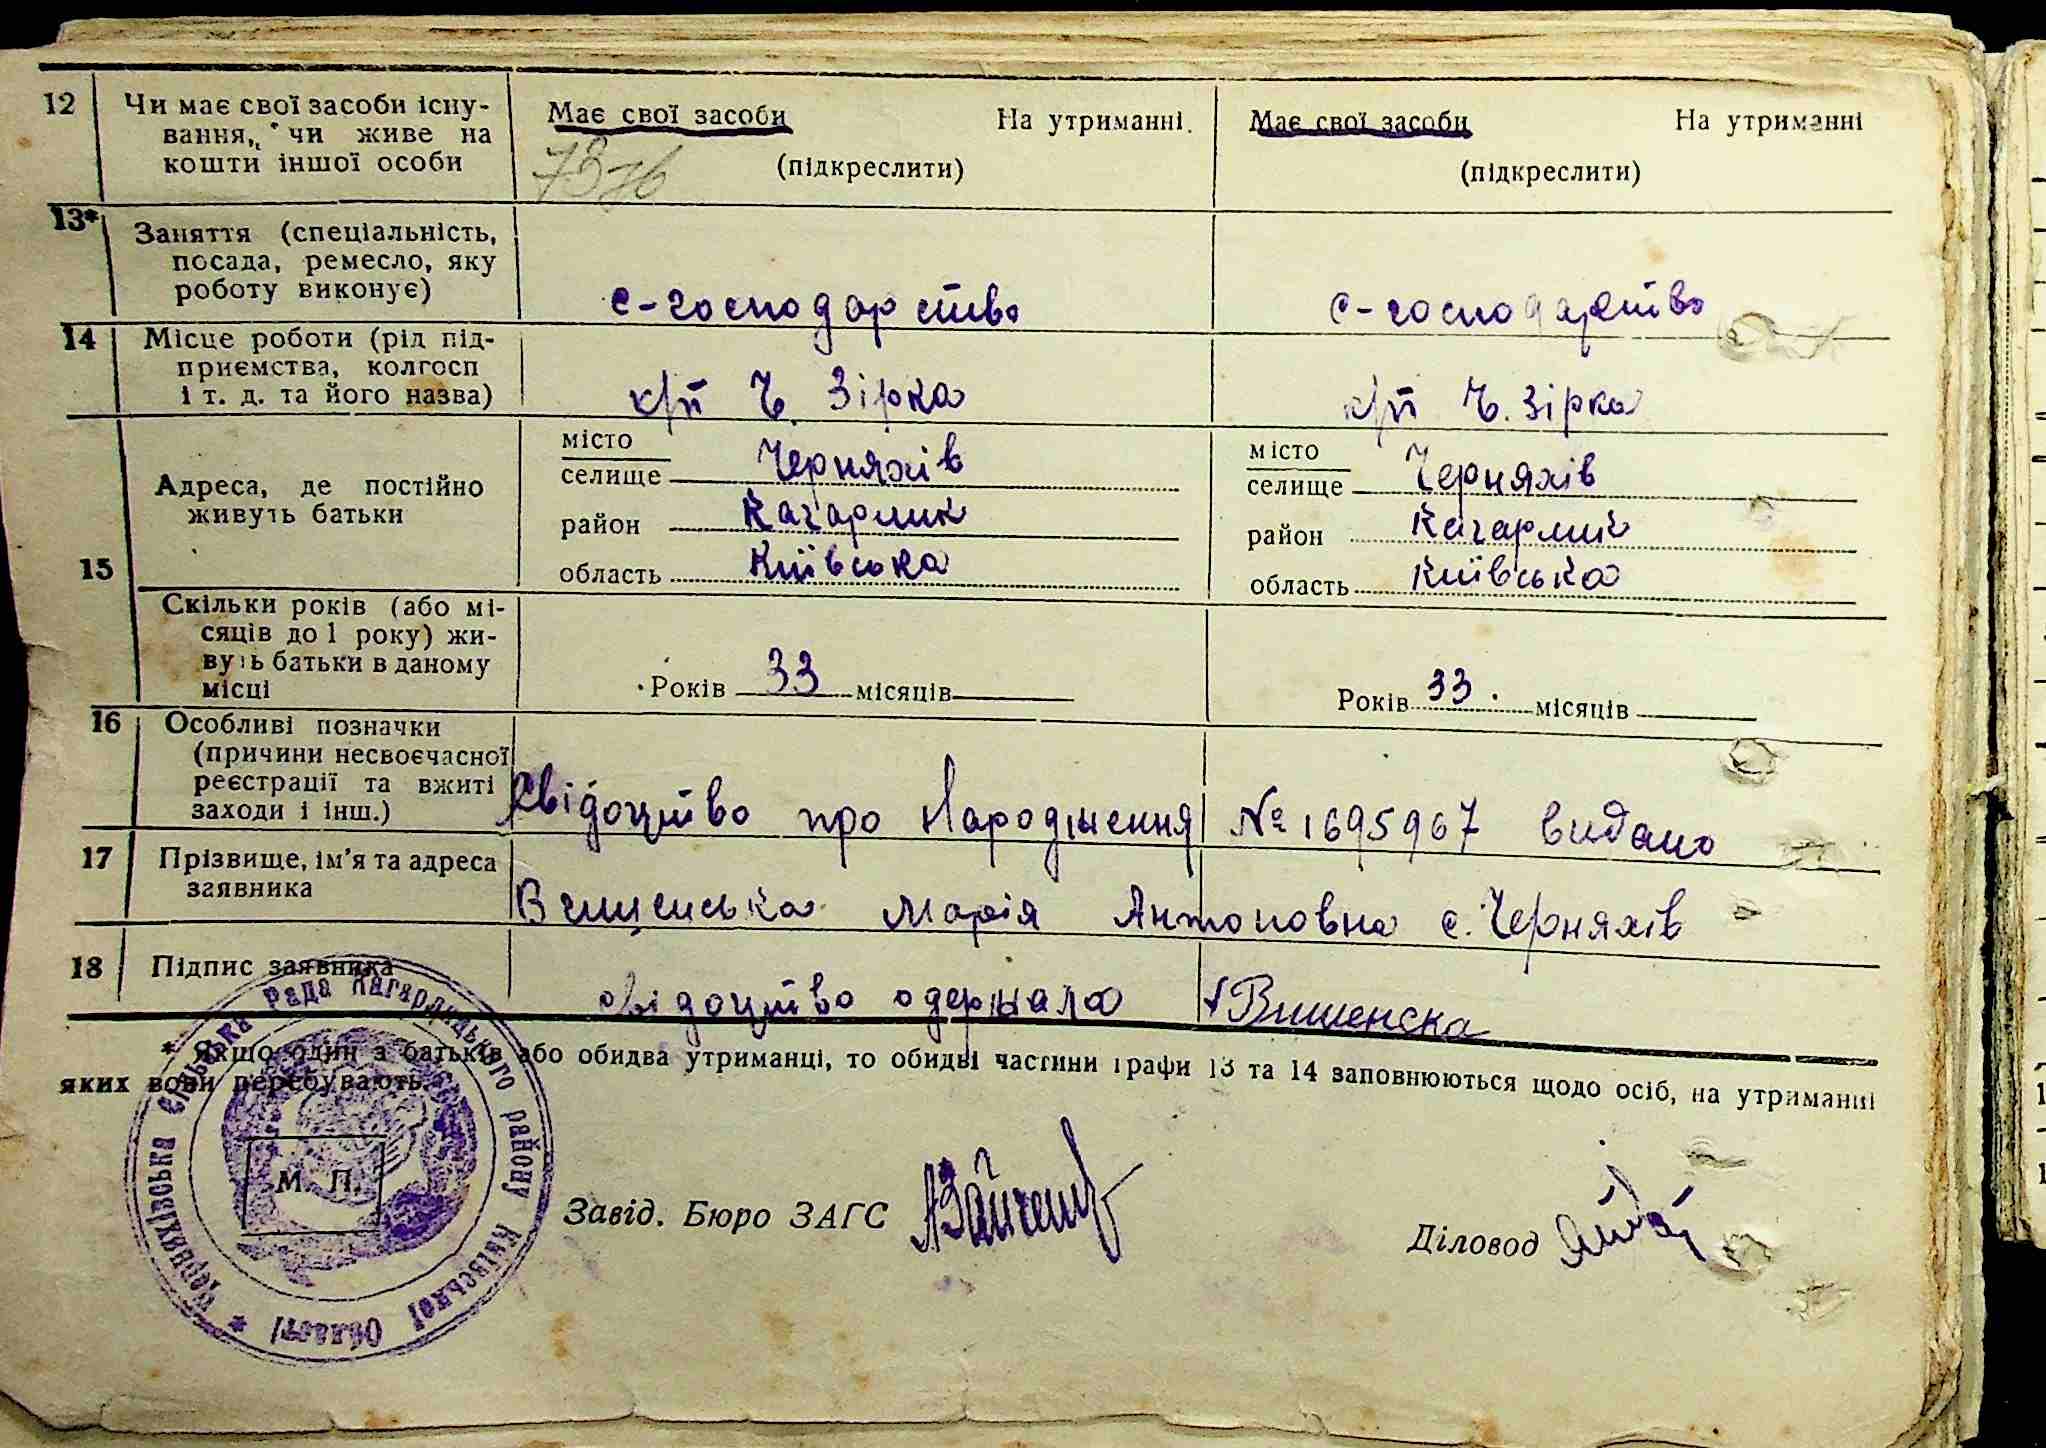 12 Чи має свої засоби існування, чи живе на кошти іншої особи
Має свої засоби На утриманні
(підкреслити)
Має свої засоби На утриманні
(підкреслити)
13* Заняття (спеціальність, посада, ремесло, яку роботу виконує)
с-господарство
с-господарство
14 Місце роботи (рід підприємства, колгосп і т. д. та його назва)
к/п Ч. Зірка
к/п Ч. Зірка
15 Адреса, де постійно живуть батьки
місто
селище Черняхів
район Кагарлик
область Київська
місто
селище Черняхів
район Кагарлик
область Київська
Скільки років (або місяців до 1 року) живуть батьки в даному місці
Років 33 місяців
Років 33 місяців
16 Особливі позначки (причини несвоєчасної реєстрації та вжиті заходи і інш.)
Свідоцтво про Народження № 1695967 видано
17 Прізвище, ім'я та адреса заявника
Вищенська Марія Антоновна с. Черняхів
18 Підпис заявника
свідоцтво одержала Вишенска
* Якщо один з батьків або обидва утриманці, то обидві частини графи 13 та 14 заповнюються щодо осіб, на утриманні
яких вони перебувають.
М. П.
Черняхівська сільська рада Кагарлицького району Київської Області
Завід. Бюро ЗАГС
Діловод